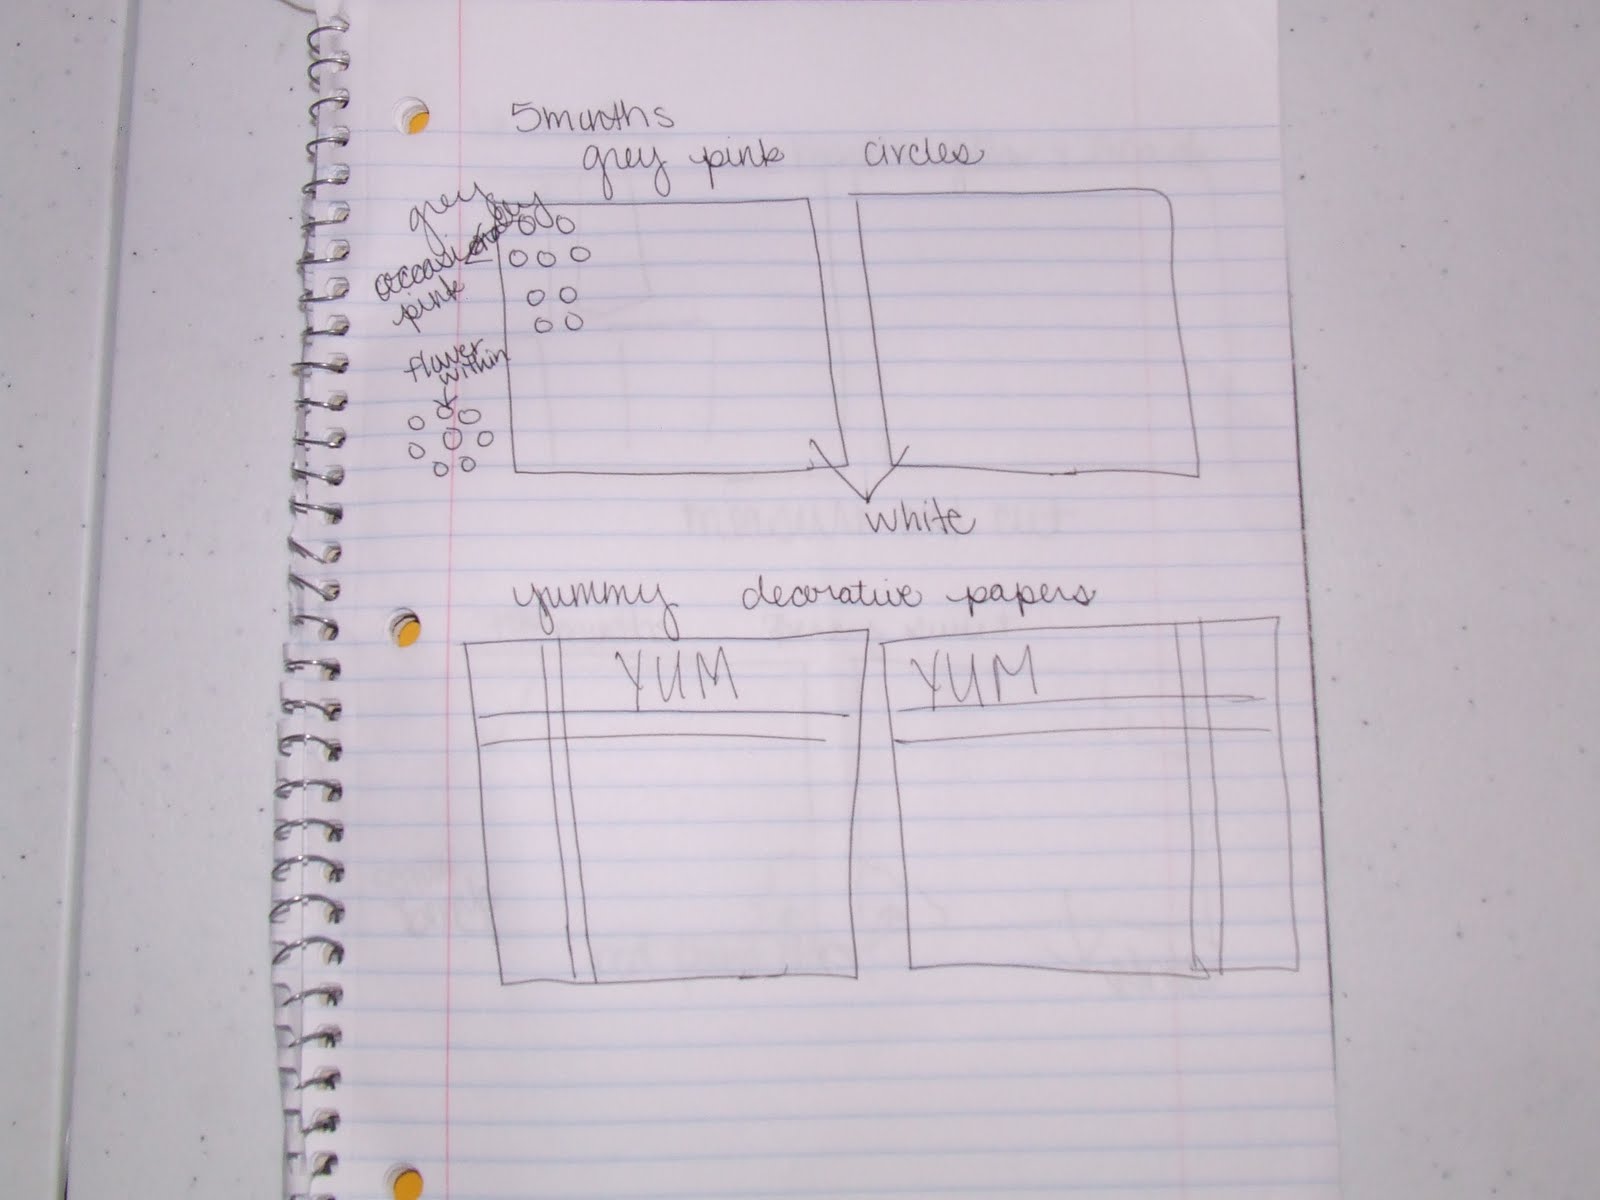 5 months
grey pink circles
grey
occasionally
pink
flower
within
white
yummy decorative papers
YUM YUM